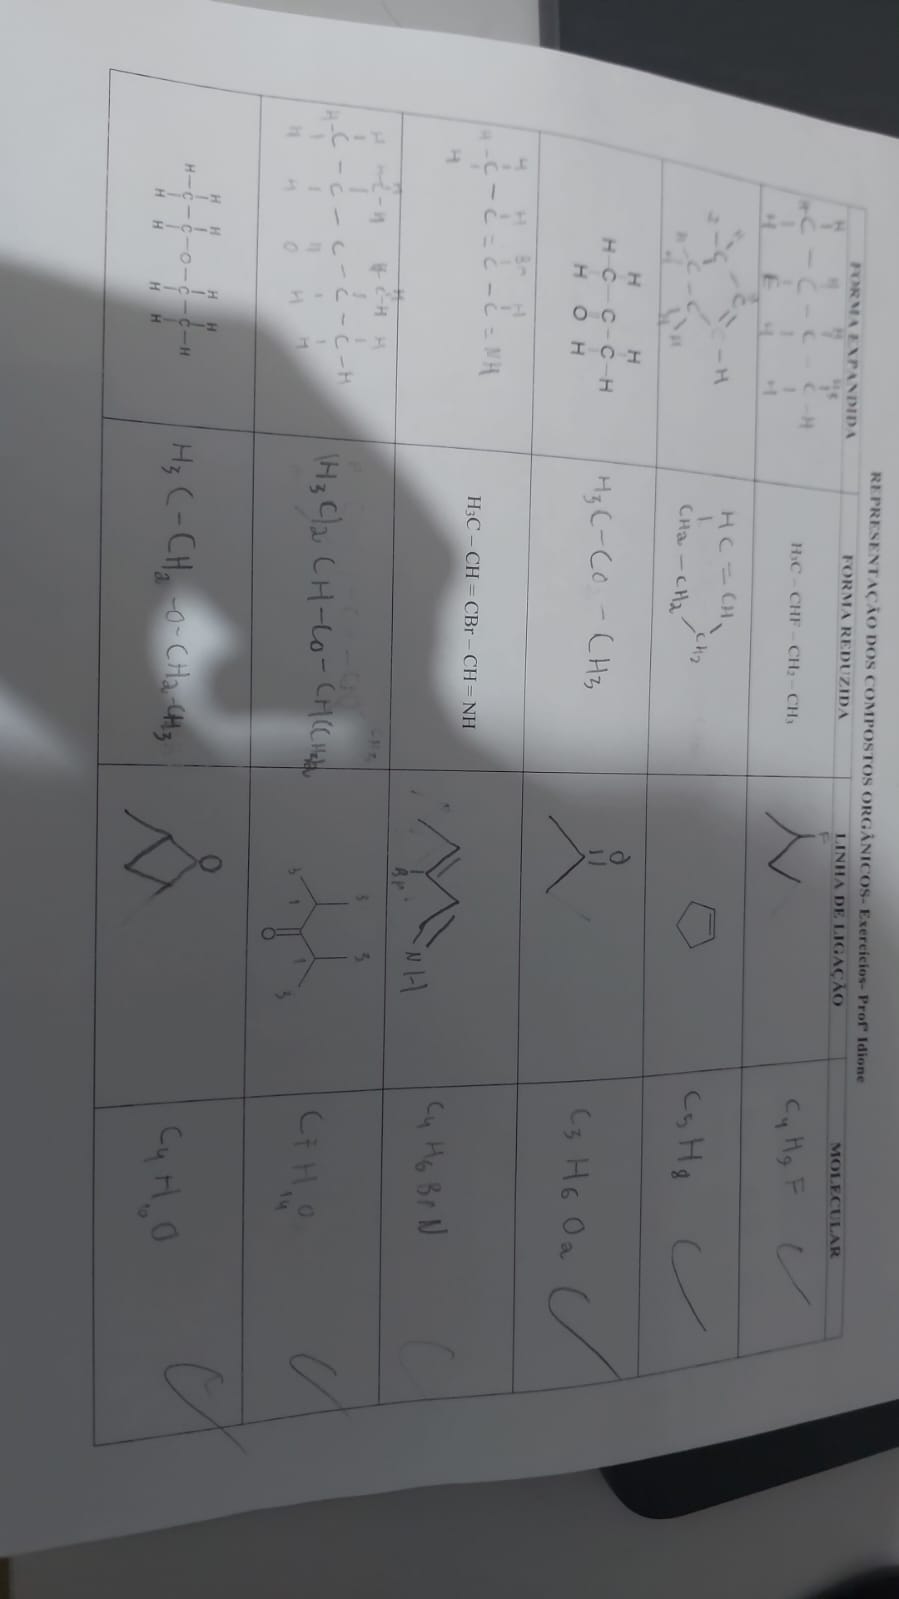 REPRESENTAÇÃO DOS COMPOSTOS ORGÂNICOS- Exercícios- Profª Idione
FORMA EXPANDIDA FORMA REDUZIDA LINHA DE LIGAÇÃO MOLECULAR
H H H H
H C - C - C - C - H
H F H H
H₃C – CHF – CH₂ – CH₃
F
C₄ H₉ F
C - H
HC = CH
CH₂
CH₂ - CH₂
C₅ H₈
H H
H-C-C-C-H
H O H
H₃C-CO - CH₃
O
C₃ H₆ O
H H Br H
H-C - C = C - C = NH
H
H₃C – CH = CBr – CH = NH
Br NH
C₄ H₆ Br N
H H-C-H H-C-H H
H-C - C - C - C - C-H
H H O H H
CH₃
(H₃C)₂ CH-CO-CH(CH₃)₂
3 3
3 1 1 3
O
C₇ H₁₄ O
H H H H
H-C-C-O-C-C-H
H H H H
H₃C-CH₂-O-CH₂-CH₃
O
C₄ H₁₀ O